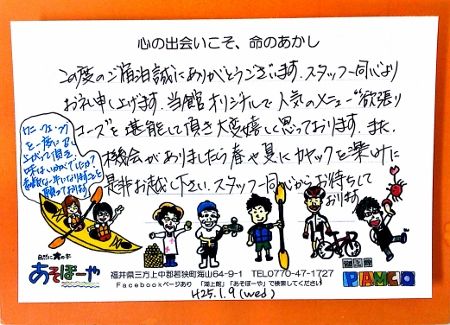 心の出会いこそ、命のあかし
この度のご宿泊誠にありがとうございます。スタッフ一同心より
お礼申し上げます。当館オリジナルで人気のメニュー"欲張り
コース"を堪能して頂き大変嬉しく思っております。また、
機会がありましたら春や夏にカヤックを楽しみに
是非お越し下さい。スタッフ一同心からお待ちして
おります。
を一度に召し
上がって頂き、
自然に♥の宿
あそぼーや
福井県三方上中郡若狭町海山64-9-1 TEL0770-47-1727
Facebookページあり 「湖上館」「あそぼーや」で検索してください
湖上館
PAMCO
H25.1.9(wed)